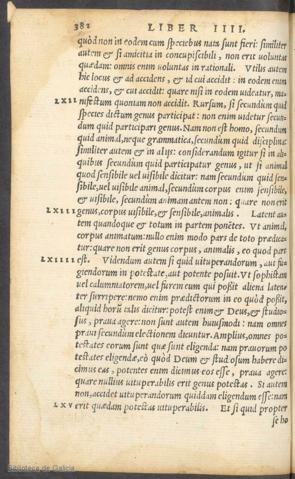 382 LIBER IIII.
quòd non in eodem cum speciebus nata sunt fieri: similiter
autem & si amicitia in concupiscibili, non erit voluntas
quædam: omnis enim voluntas in rationali. Vtilis autem
hic locus & ad accidens, & id cui accidit: in eodem enim
accidens, & cui accidit: quare nisi in eodem uideatur, ma-
LXII nifestum quoniam non accidit. Rursum, si secundum quid
species dictum genus participat: non enim uidetur secun-
dum quid participari genus. Nam non est homo, secundum
quid animal, neque grammatica, secundum quid disciplina:
similiter autem & in alijs: considerandum igitur si in ali-
quibus secundum quid participatur genus, ut si animal
quod sensibile uel uisibile dicitur: nam secundum quid sen-
sibile, uel uisibile animal, secundum corpus enim sensibile,
& uisibile, secundum animam autem non: quare non erit
LXIII genus, corpus uisibile, & sensibile, animalis. Latent au-
tem quandoque & totum in partem ponẽtes. Vt animal,
corpus animatum: nullo enim modo pars de toto prædica-
tur: quare non erit genus corpus, animalis, eo quod pars
LXIIII est. Videndum autem si quid uituperandorum, aut fu-
giendorum in potestate, aut potente posuit. Vt sophistam
uel calumniatorem, uel furem cum qui possit aliena laten-
ter surripere: nemo enim prædictorum in eo quòd possit,
aliquid horũ talis dicitur: potest enim & Deus, & studio-
sus, praua agere: non sunt autem huiusmodi: nam omnes
praui secundum electionem dicuntur. Amplius, omnes po-
testates eorum sunt quæ sunt eligenda: nam prauorum po
testates eligendæ, eò quòd Deum & studiosum habere di-
cimus eas, potentes enim dicimus eos esse, praua agere:
quare nullius uituperabilis erit genus potestas. Si autem
non, accidet uituperandorum quiddam eligendum esse: nam
LXV erit quædam potestas uituperabilis. Et si quid propter
se ho
Biblioteca de Galicia